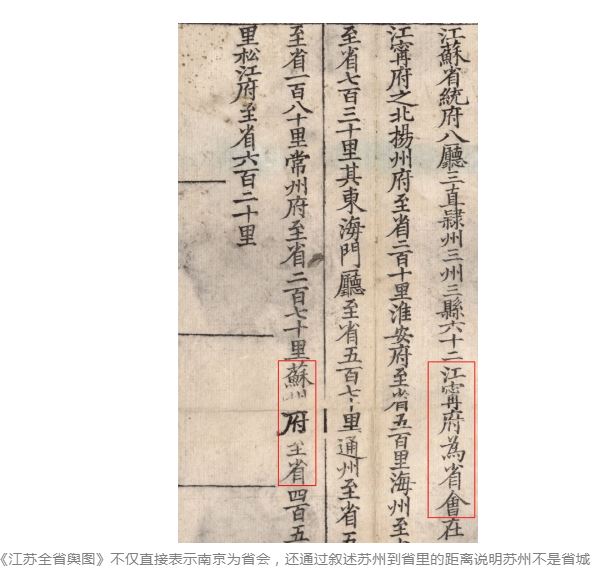 江蘇省統府八廳三直隸州三州三縣六十二江寧府為省會在
江寧府之北揚州府至省二百十里淮安府至省五百里海州至
至省七百三十里其東海門廳至省五百七十里通州至省五
至省一百八十里常州府至省二百七十里蘇州府至省四百五
里松江府至省六百二十里
《江苏全省舆图》不仅直接表示南京为省会，还通过叙述苏州到省里的距离说明苏州不是省城